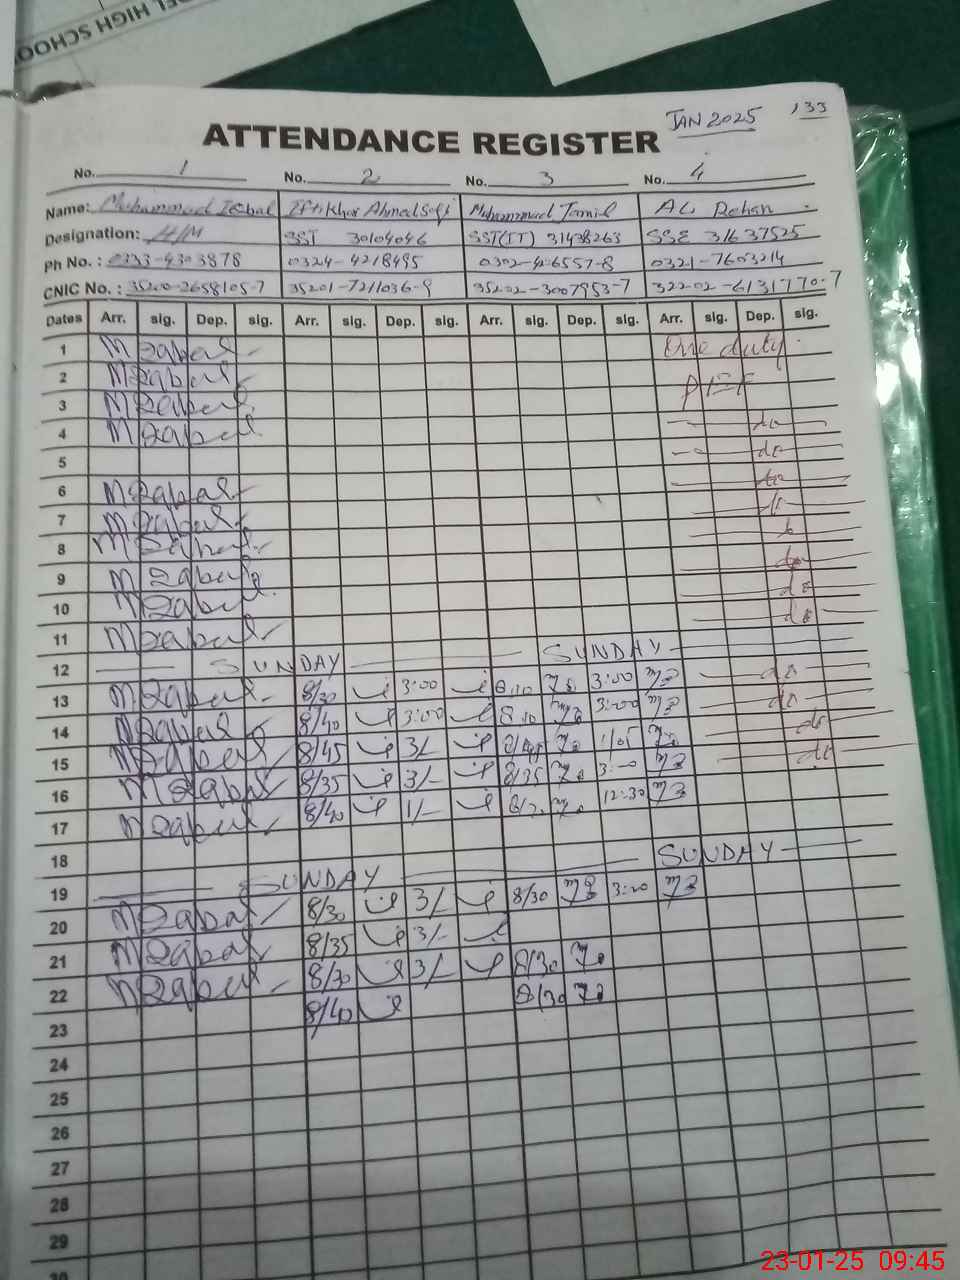 HIGH SCHOOL
JAN 2025 133
ATTENDANCE REGISTER
No. 1 No. 2 No. 3 No. 4
Name: Muhammad Iqbal Iftikhar Ahmed Sufi Muhammad Jamil
Designation: H/M SST 30104046 SST(IT) 31438263 SSE 31637525
Ph No. : 0333-4303878 0324-4218495 0302-426557-8 0321-7603214
CNIC No. : 35200-2658105-7 35201-7211036-9 35202-3007953-7 32202-6131770-7
Dates Arr. sig. Dep. sig. Arr. sig. Dep. sig. Arr. sig. Dep. sig. Arr. sig. Dep. sig.
1 MIqbal One duty
2 MIqbal
3 MIqbal do
4 MIqbal do
5 do
6 MIqbal
7 MIqbal
8 MIqbal do
9 MIqbal do
10 MIqbal do
11 MIqbal
12 SUNDAY SUNDAY
13 MIqbal 8/30 3:00 8:10 3:00 do
14 MIqbal 8/40 3:00 8:10 3:00 do
15 MIqbal 8/45 3/- 8/45 1/05 do
16 MIqbal 8/35 3/- 8/35 3:00 do
17 MIqbal 8/40 1/- 12:30
18
19 SUNDAY SUNDAY
20 MIqbal 8/30 3/- 8/30 3:00
21 MIqbal 8/35 3/-
22 MIqbal 8/30 3/- 8/30
23 8/40 8/30
24
25
26
27
28
29
30
23-01-25 09:45